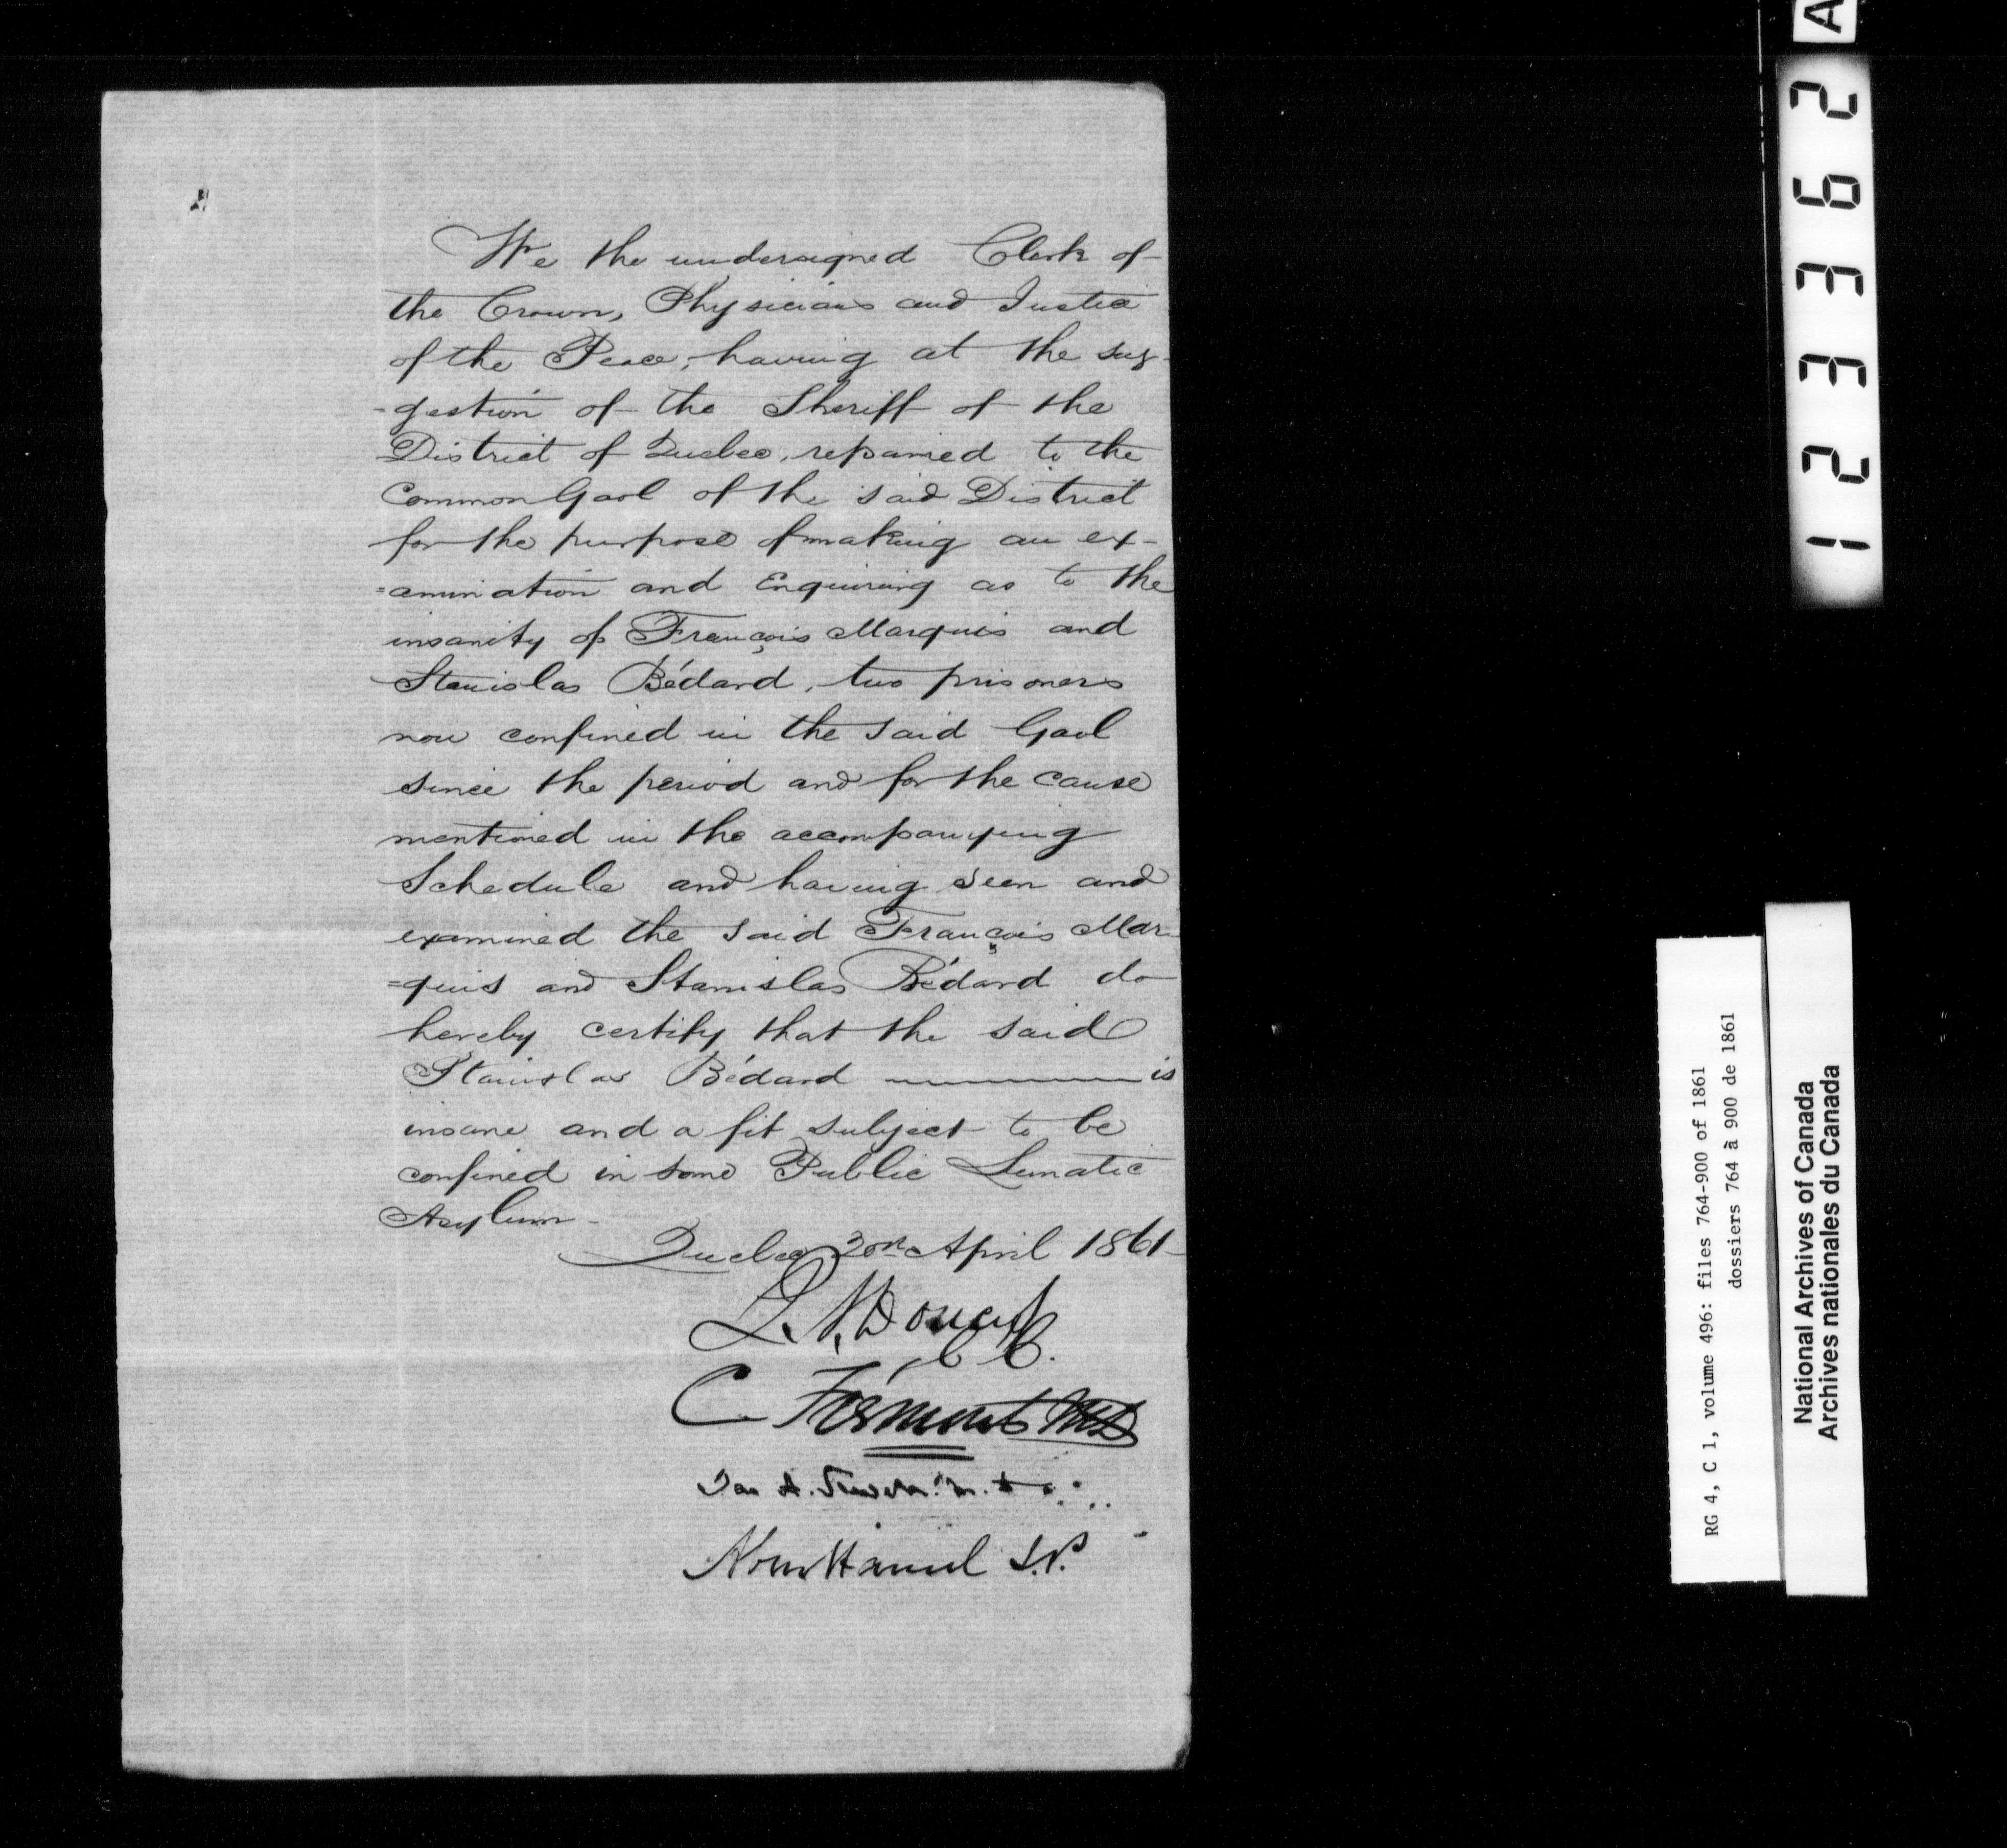 We the undersigned Clerk of
the Crown, Physicians and Justice
of the Peace, having at the sug-
-gestion of the Sheriff of the
District of Quebec, repaired to the
Common Gaol of the said District
for the purpose of making an ex-
=amination and Enquiring as to the
insanity of François Marquis and
Stanislas Bédard, two prisoners
now confined in the said Gaol
since the period and for the cause
mentioned in the accompanying
Schedule and having seen and
examined the said François Mar-
=quis and Stanislas Bédard do
hereby certify that the said
Stanislas Bédard is
insane and a fit subject to be
confined in some Public Lunatic
Asylum -
Quebec April 1861 -
C. C.
C. Frémont MD
J.P.
123362
A
RG 4, C 1, volume 496: files 764-900 of 1861
dossiers 764 à 900 de 1861
National Archives of Canada
Archives nationales du Canada